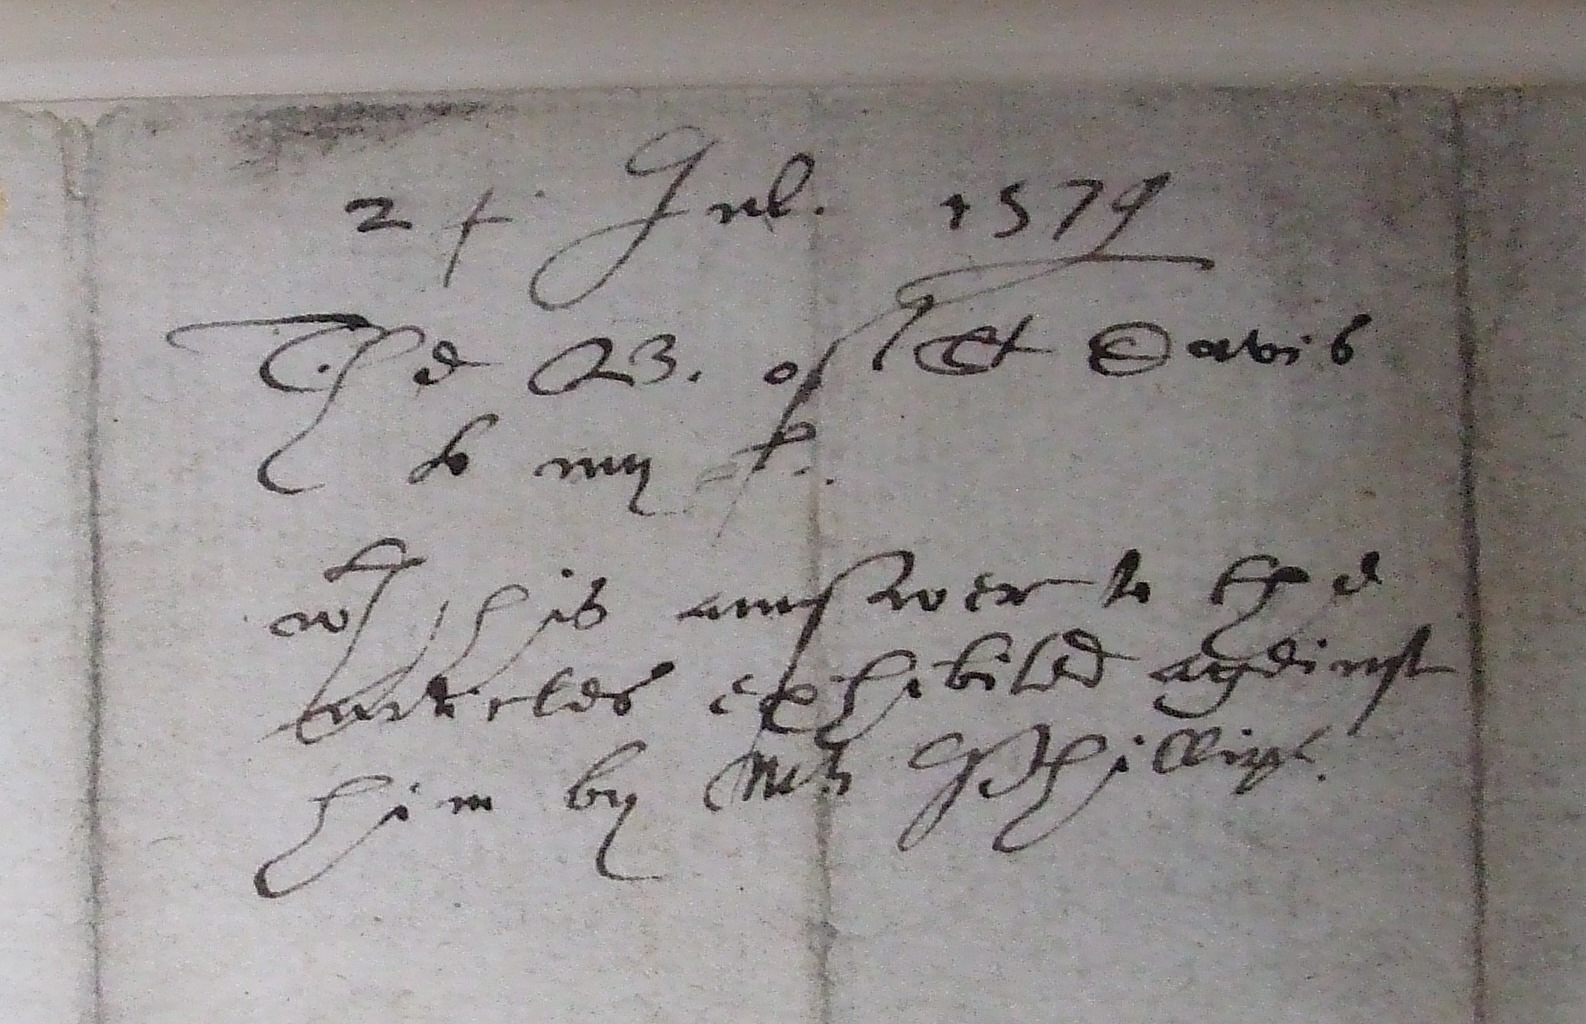 24. Jul. 1579
The B. of St Davis
to my L.
wth his answer to the
articles exhibited against
him by Mr Phillips.